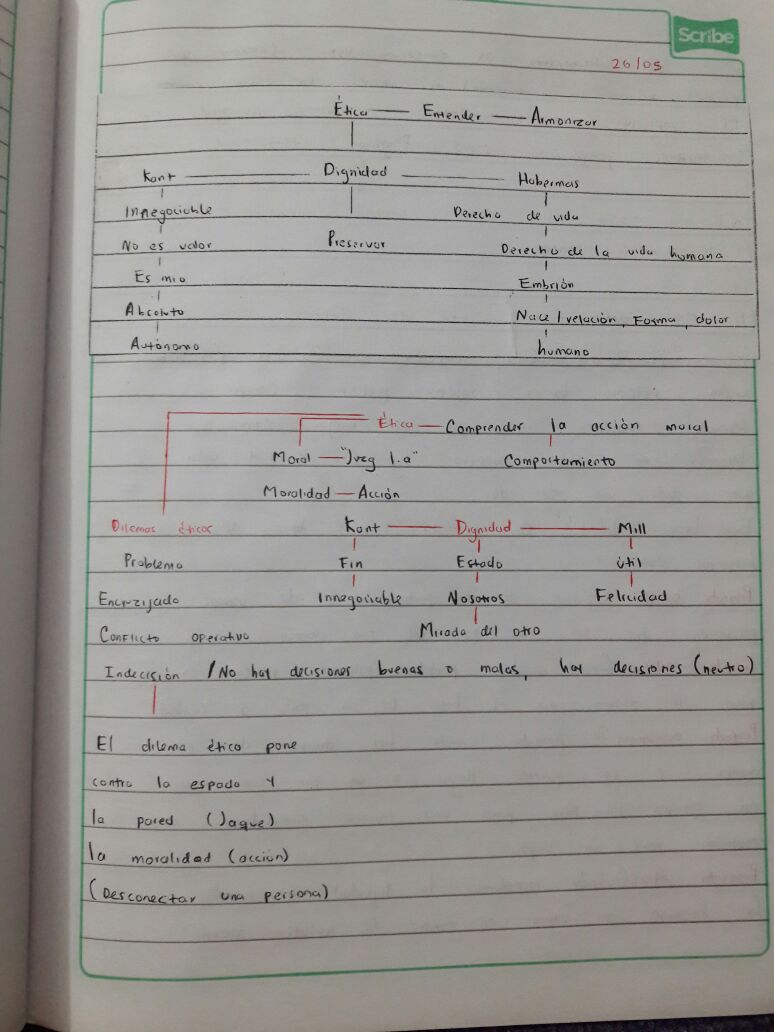 Scribe
26/05
Ética — Entender — Armonizar
Kant — Dignidad — Habermas
Innegociable Derecho de vida
No es valor Preservar Derecho de la vida humana
Es mio Embrión
Absoluto Nace/relación, Forma, dolor
Autónomo humano
Ética — Comprender la acción moral
Moral — "Juzg 1.a" Comportamiento
Moralidad — Acción
Dilemas éticos Kant — Dignidad — Mill
Problema Fin Estado útil
Encrzijado Innegociable Nosotros Felicidad
Conflicto operativo Mirada del otro
Indecisión / No hay decisiones buenas o malas, hay decisiones (neutro)
El dilema ético pone
contra la espada y
la pared (Jaque)
la moralidad (acción)
(Desconectar una persona)